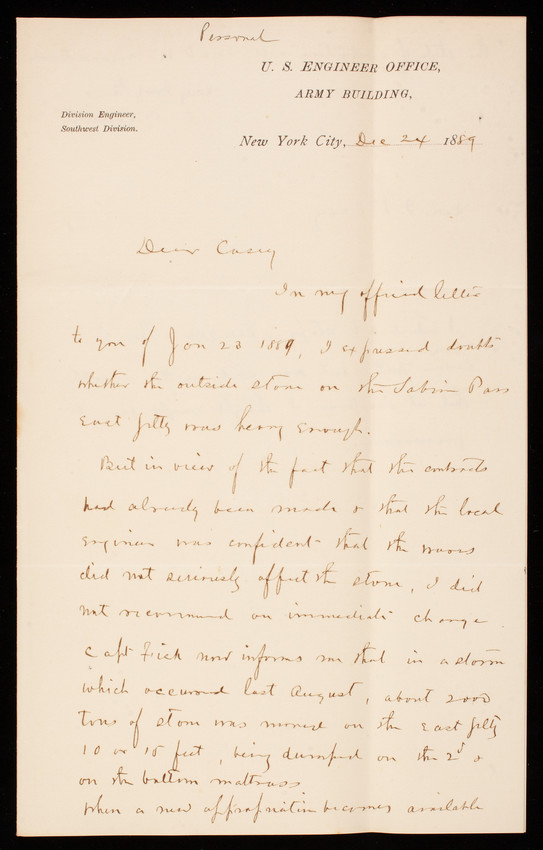 Personal
U. S. ENGINEER OFFICE,
ARMY BUILDING,
Division Engineer,
Southwest Division.
New York City, Dec 24 1889
Dear Casey
In my official letter
to you of Jan 23 1889, I expressed doubts
whether the outside stone on the Sabine Pass
East Jetty was heavy enough.
But in view of the fact that the contracts
had already been made & that the local
engineer was confident that the waves
did not seriously affect the stone, I did
not recommend an immediate change
Capt Fisk now informs me that in a storm
which occurred last August, about 2000
tons of stone was moved on the East Jetty
10 or 15 feet, being dumped on the 2d &
on the bottom mattrass
When a new appropriation becomes available